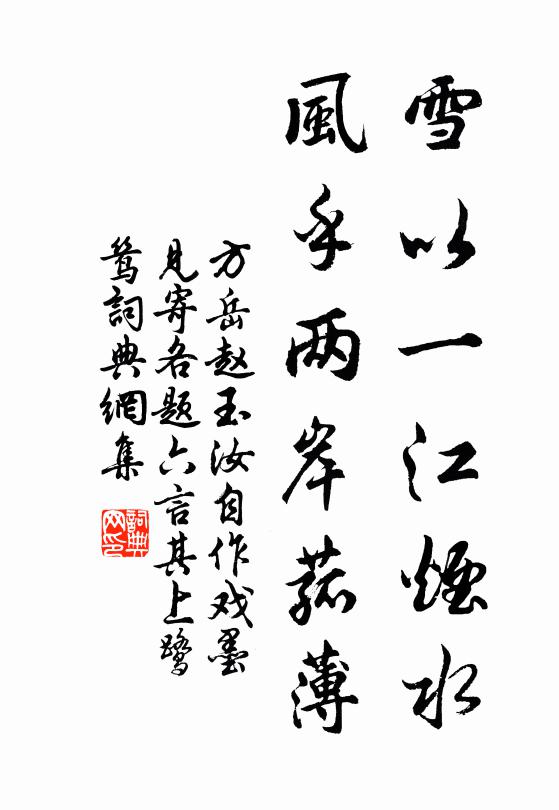 雪以一江煙水
風乎两岸菰薄
方岳赵玉汝自作戏墨
見寄各题六言其上鹭
鸶詞典網集
詞典
网印